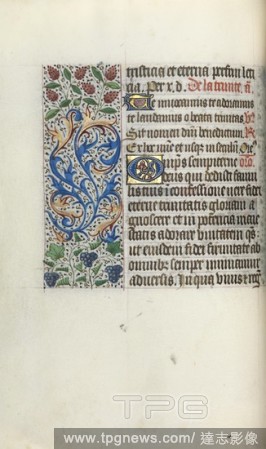 tristicia et eterna perfrui leti
cia. Per x. d. De la trinite. a.
Te invocamus te adoramus
te laudamus o beata trinitas. v.
Sit nomen dni benedictum. R.
Ex hoc nunc et usq in seculu. Oro.
Omnipotens sempiterne oro.
deus qui dedisti famulis
tuis i confessione vere fidei
eterne trinitatis gloriam a
gnoscere et in potencia maie
statis adorare unitatem qs
ut eiusdem fidei firmitate ab
omnibz semper muniamur
adversis. In qua vivis et reg.
TPG
www.tpgnews.com / 達志影像